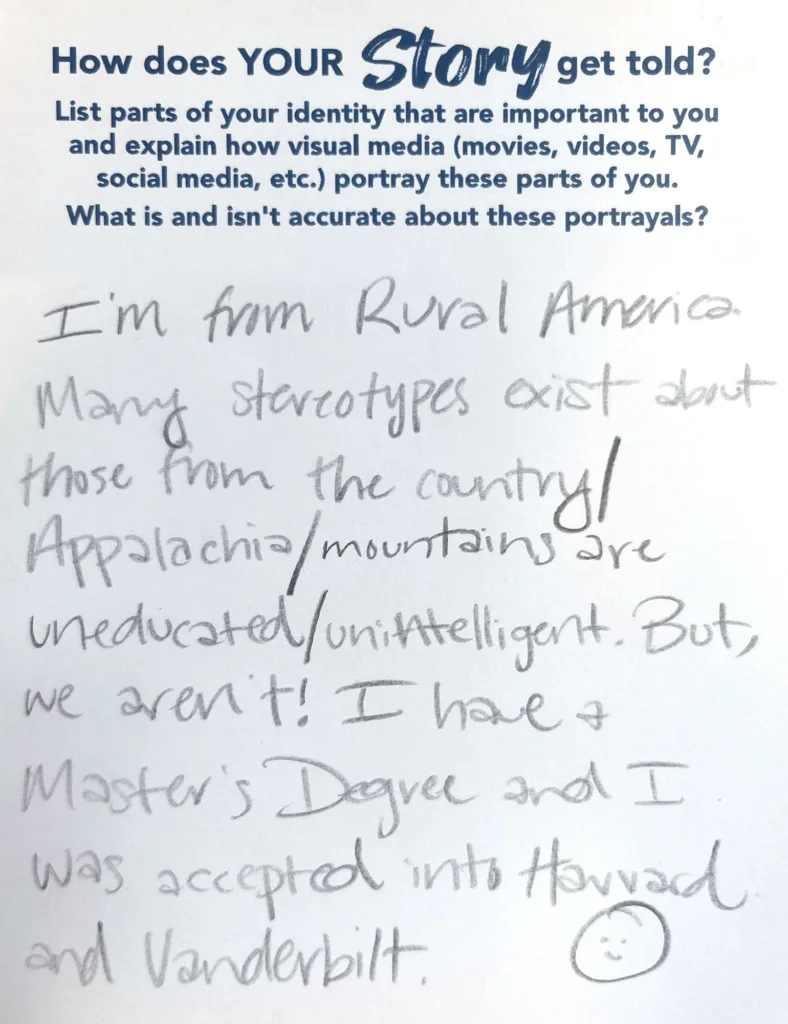 How does YOUR Story get told?
List parts of your identity that are important to you
and explain how visual media (movies, videos, TV,
social media, etc.) portray these parts of you.
What is and isn't accurate about these portrayals?
I'm from Rural America.
Many stereotypes exist about
those from the country/
Appalachia/mountains are
uneducated/unintelligent. But,
we aren't! I have a
Master's Degree and I
was accepted into Harvard
and Vanderbilt.